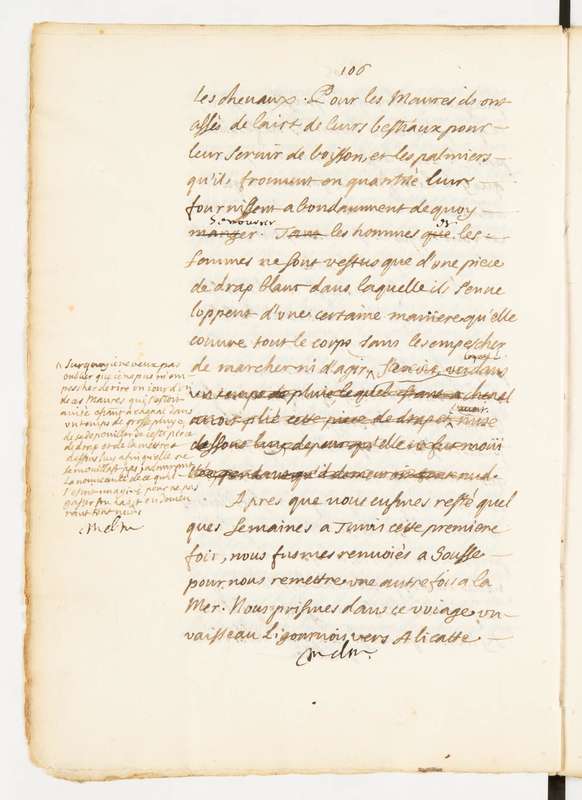 106
les chevaux. Pour les Maures ils ont
assés de lait de leurs bestiaux pour
leur servir de boisson, et les palmiers
qu'ils trouvent en quantité leur
fournissent abondamment de quoy
se nourrir
manger. Tant les hommes que les
et
femmes ne sont vestus que d'une piece
de drap blanc dans laquelle ils s'enve
loppent d'une certaine maniere qu'elle
couvre tout le corps sans les empescher
de marcher ni d'agir.
un temps de pluie lequel estant a cheval
avoit plié cette piece de drap et mise
dessous luy de peur qu'elle ne fut moüil
lée pendant qu'il demeuroit tout nud.
Sur quoy je ne veux pas
oublier que je ne pus m'em
pescher de rire un jour d'un
de ces Maures qui s'estoit
avisé estant a cheval dans
un temps de grosse pluye,
de se depouiller de cette piece
de drap et de la mettre
dessous luy afin qu'elle ne
se mouillast pas
La nouveauté de ce qu'il
tout nud
Apres que nous eusmes resté quel
ques semaines a Tunis cette premiere
fois, nous fusmes renvoiés a Sousse
pour nous remettre une autre fois a la
Mer. Nous prismes dans ce voiage un
vaisseau Ligournois vers Alicatte